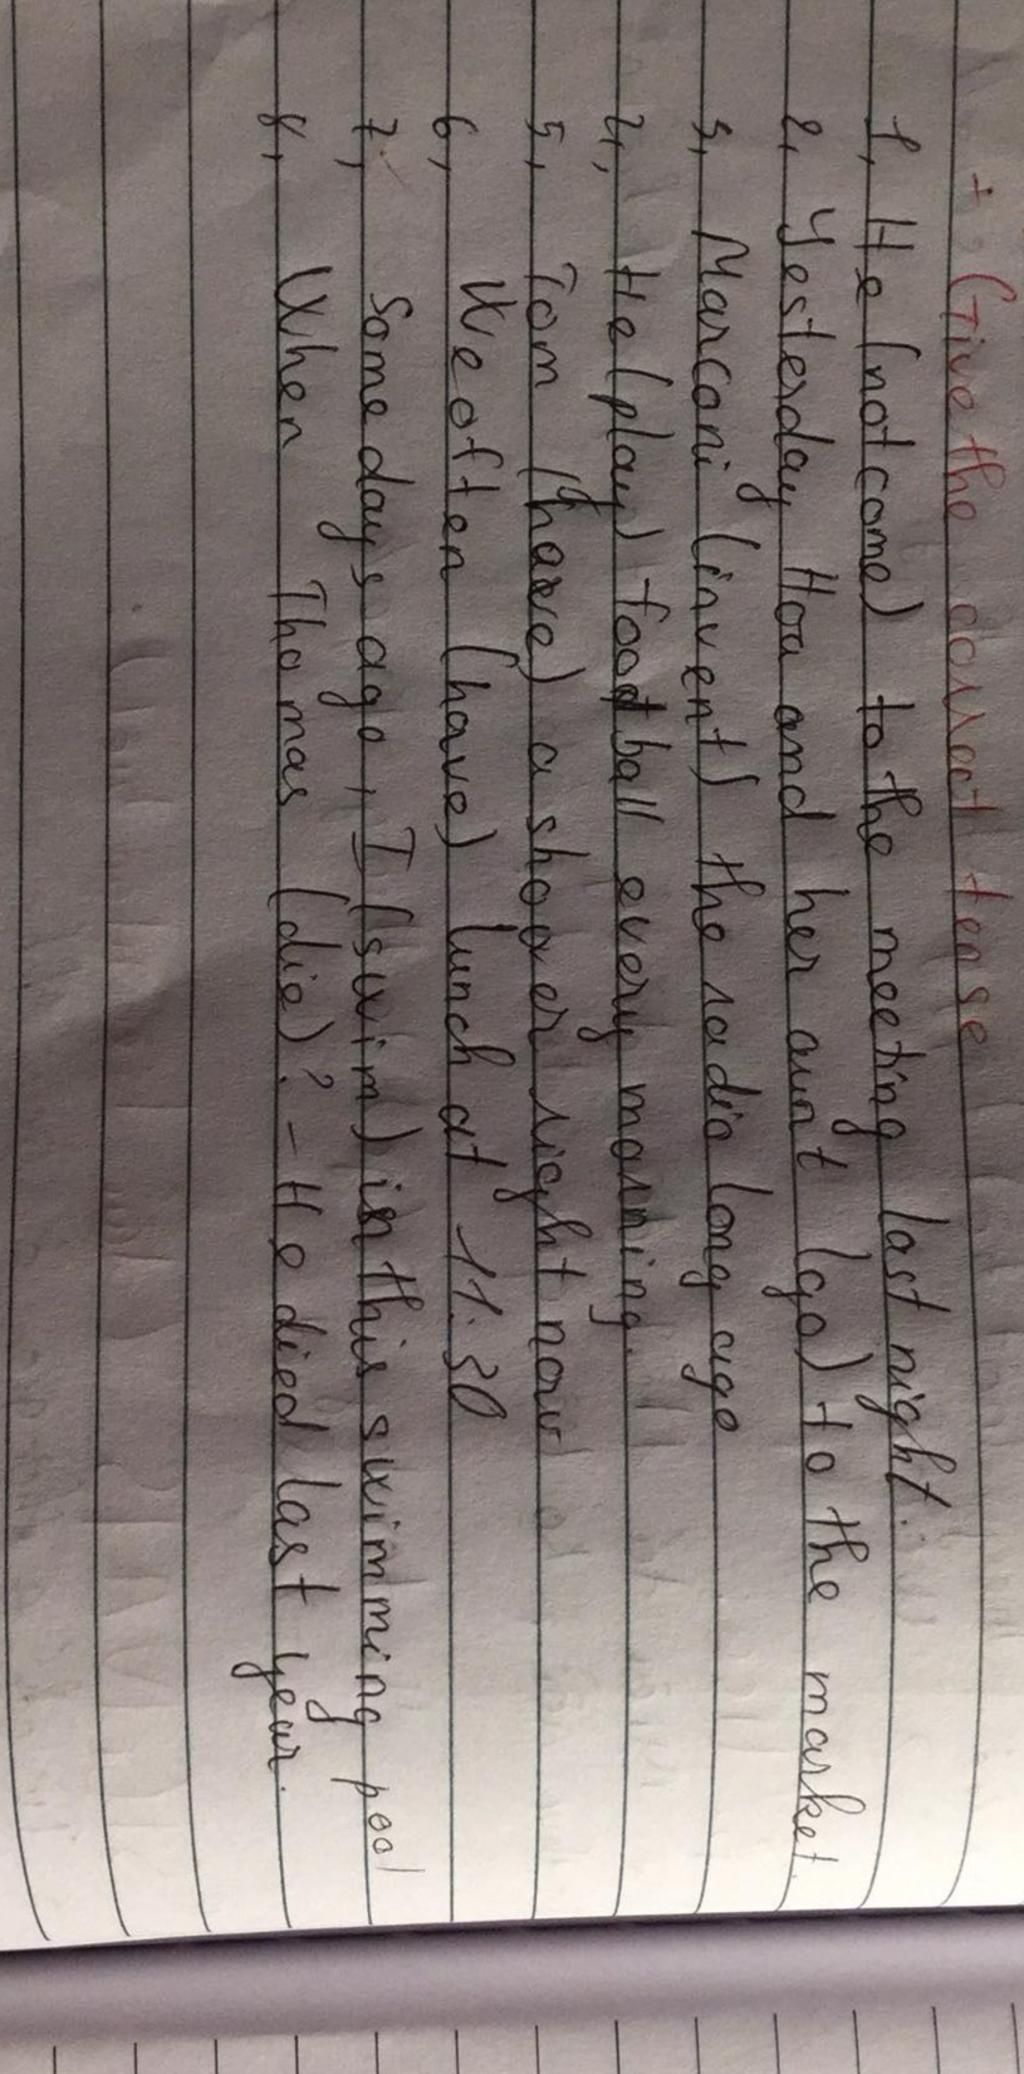 +. Give the correct tense
1, He (not come) to the meeting last night.
2, Yesterday Hoa and her aunt (go) to the market.
3, Marconi (invent) the radio long ago
4, He (play) football every morning.
5, Tom (have) a shower right now
6, We often (have) lunch at 11:30
7, Some days ago, I (swim) in this swimming pool
8, When Thomas (die)? - He died last year.